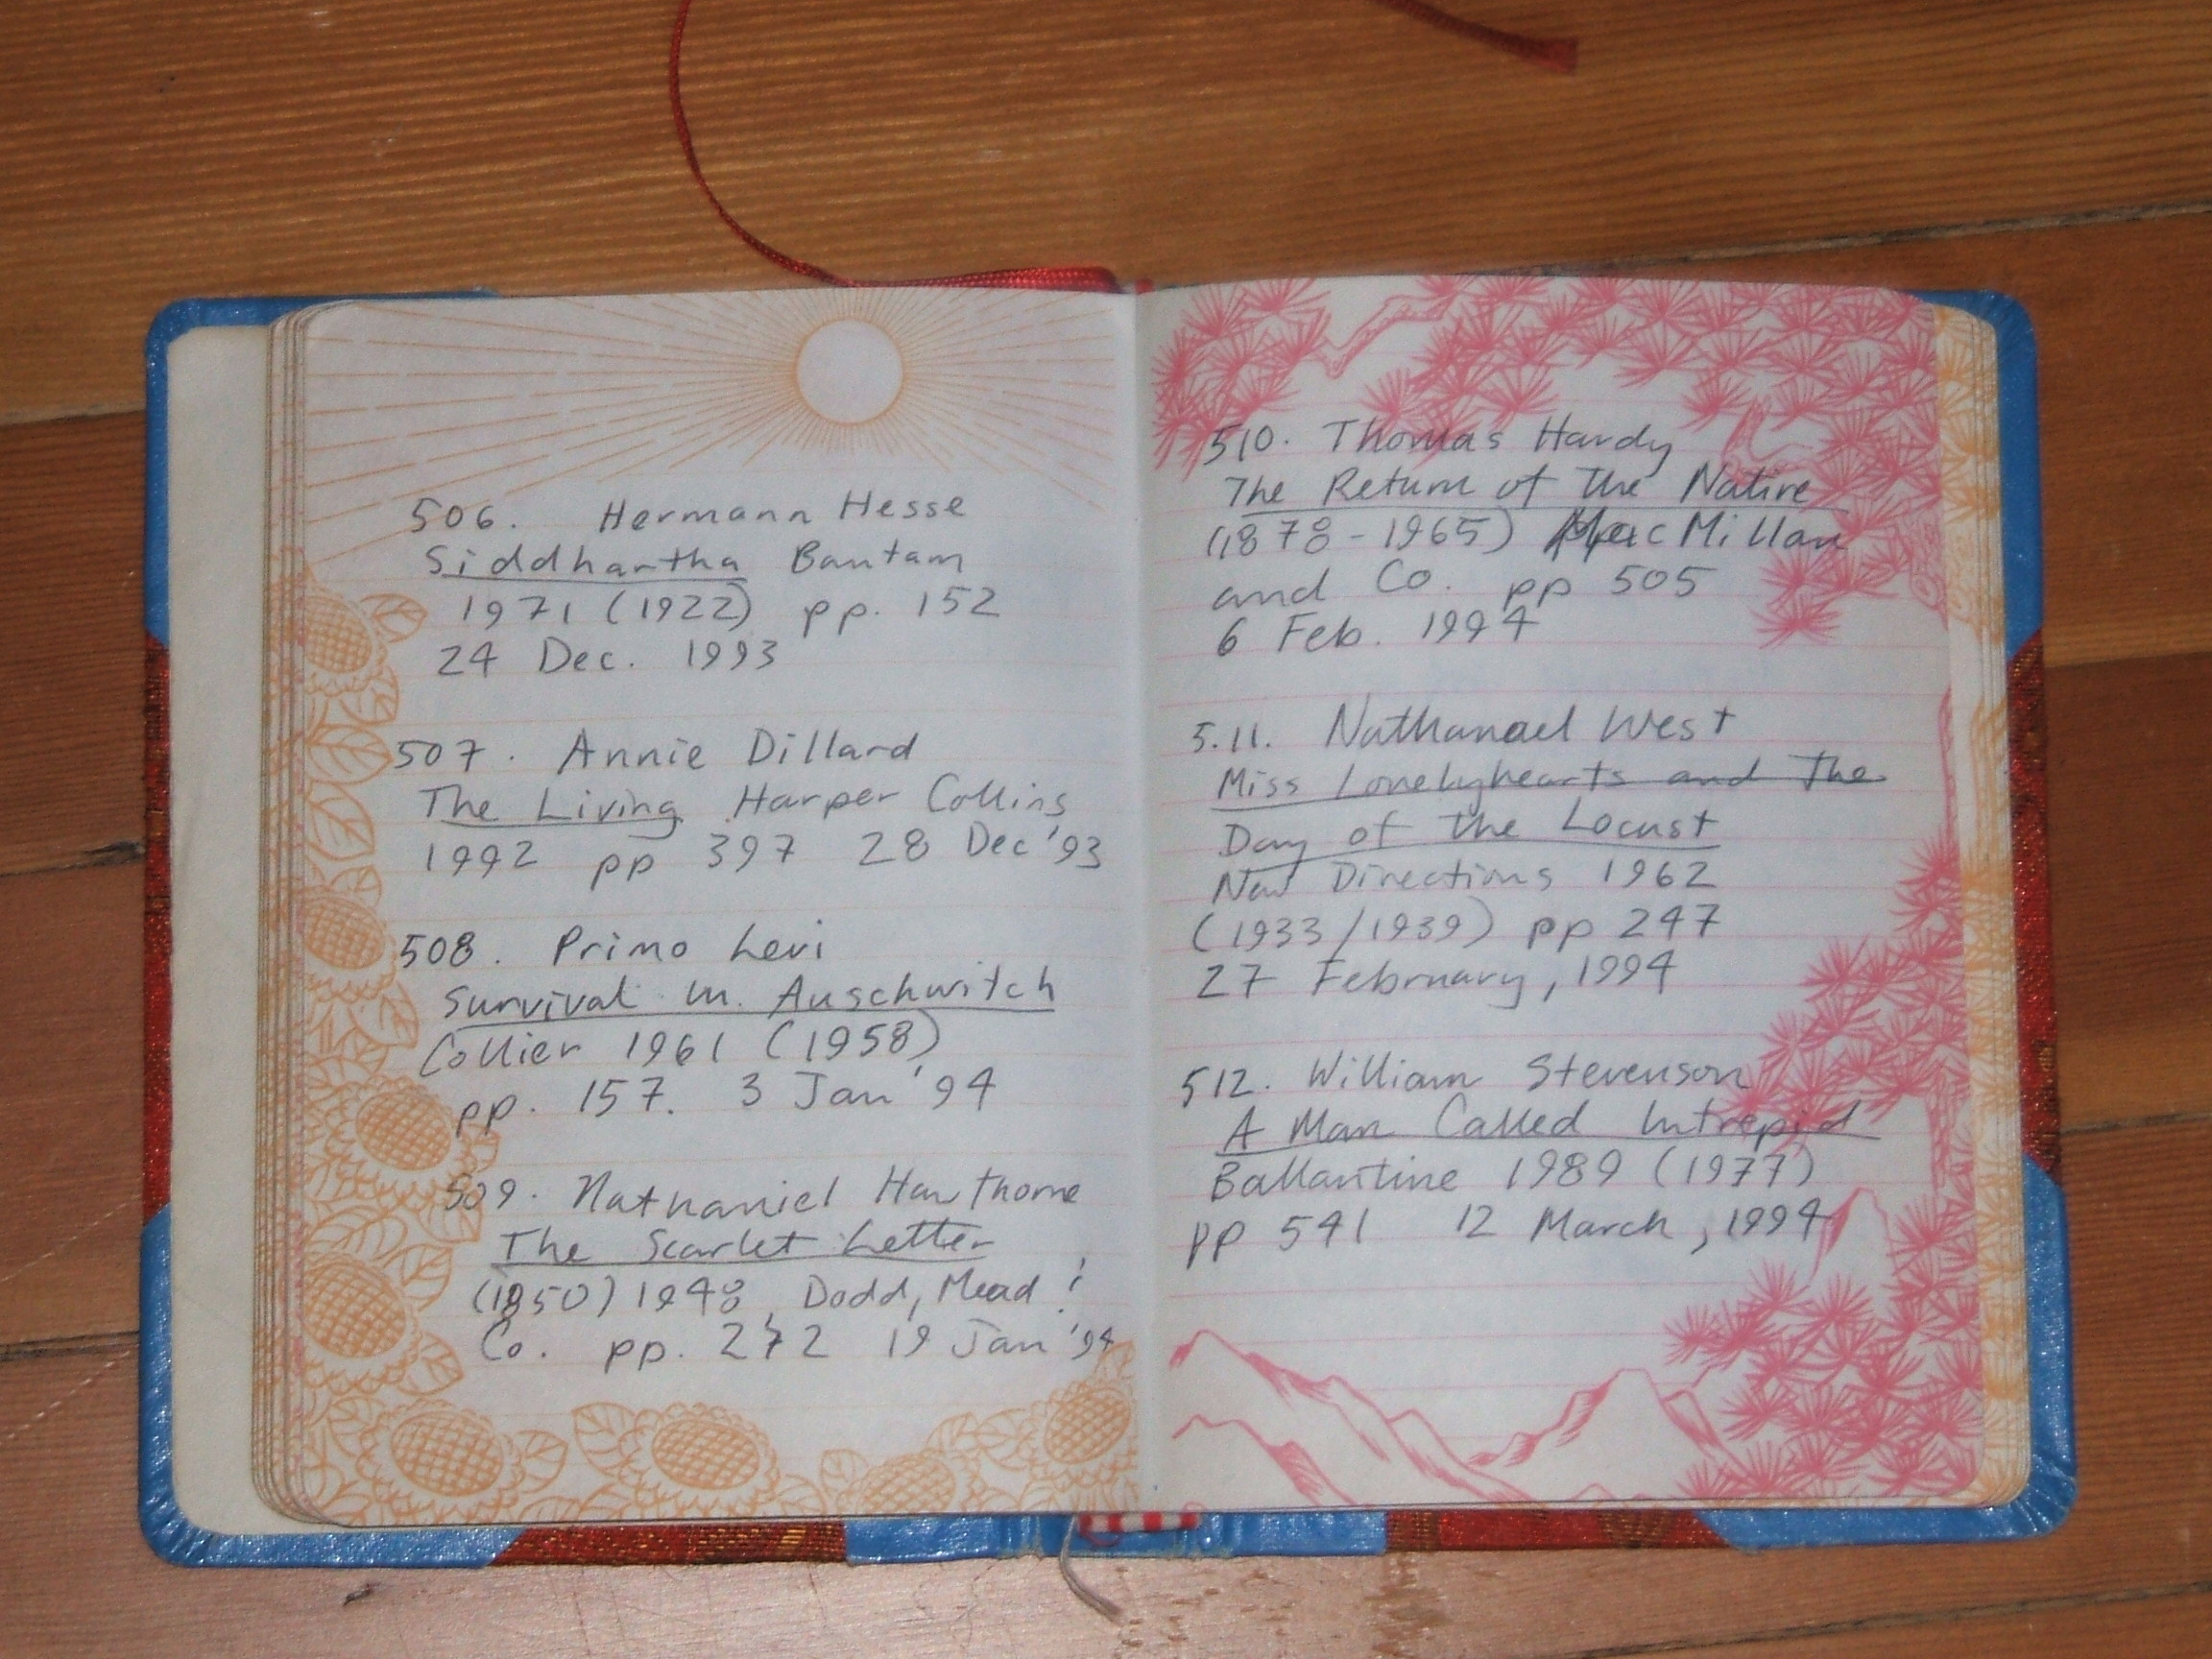 506. Hermann Hesse
Siddhartha Bantam
1971 (1922) pp. 152
24 Dec. 1993
507. Annie Dillard
The Living Harper Collins
1992 pp 397 28 Dec '93
508. Primo Levi
Survival in Auschwitch
Collier 1961 (1958)
pp. 157. 3 Jan '94
509. Nathaniel Hawthorne
The Scarlet Letter
(1850) 1948 Dodd, Mead &
Co. pp. 272 19 Jan '94
510. Thomas Hardy
The Return of the Native
(1878-1965) MacMillan
and Co. pp 505
6 Feb. 1994
5.11. Nathanael West
Miss Lonelyhearts and The
Day of the Locust
New Directions 1962
(1933/1939) pp 247
27 February, 1994
512. William Stevenson
A Man Called Intrepid
Ballantine 1989 (1977)
pp 541 12 March, 1994